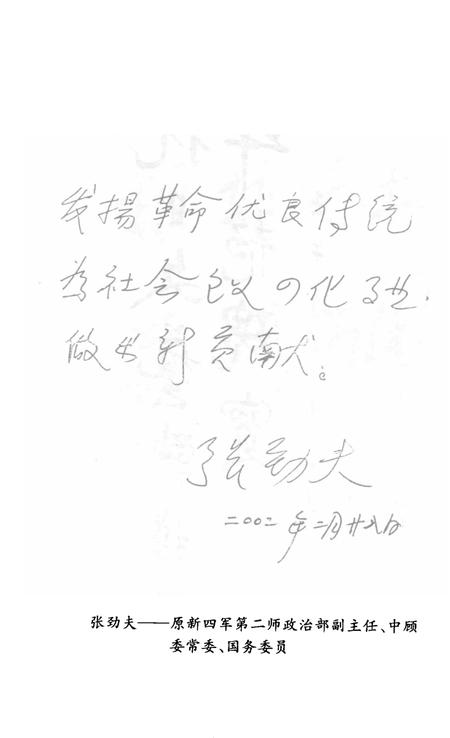 发揚革命优良传统
为社会主义四化
做出新贡献。
张劲夫
二〇〇二年二月廿八日
张劲夫——原新四军第二师政治部副主任、中顾
委常委、国务委员